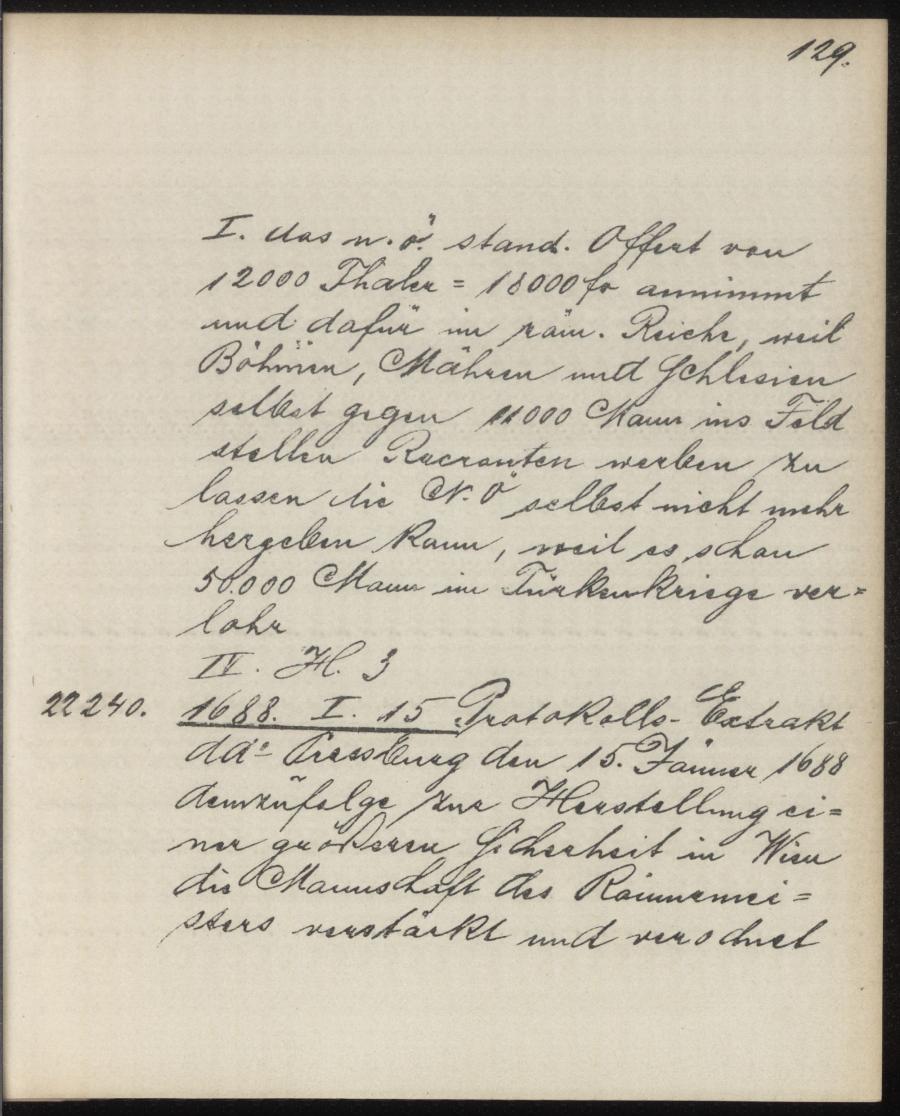 129.
I. das n. ö. stand. Offert von
12000 Thaler = 18000 fr annimmt
und dafür im röm. Reiche, weil
Böhmen, Mähren und Schlesien
selbst gegen 11000 Mann ins Feld
stellen Recrouten werben zu
lassen die N. Ö selbst nicht mehr
hergeben kann, weil es schon
50.000 Mann im Türkenkriege ver=
lohr
IV. H. 3
22240. 1688. I. 15 Protokolls-Extrakt
dd° Pressburg den 15. Jänner 1688
demzufolge zur Herstellung ei=
ner größeren Sicherheit in Wien
die Mannschaft des Raiumemei=
sters verstärkt und verodnet